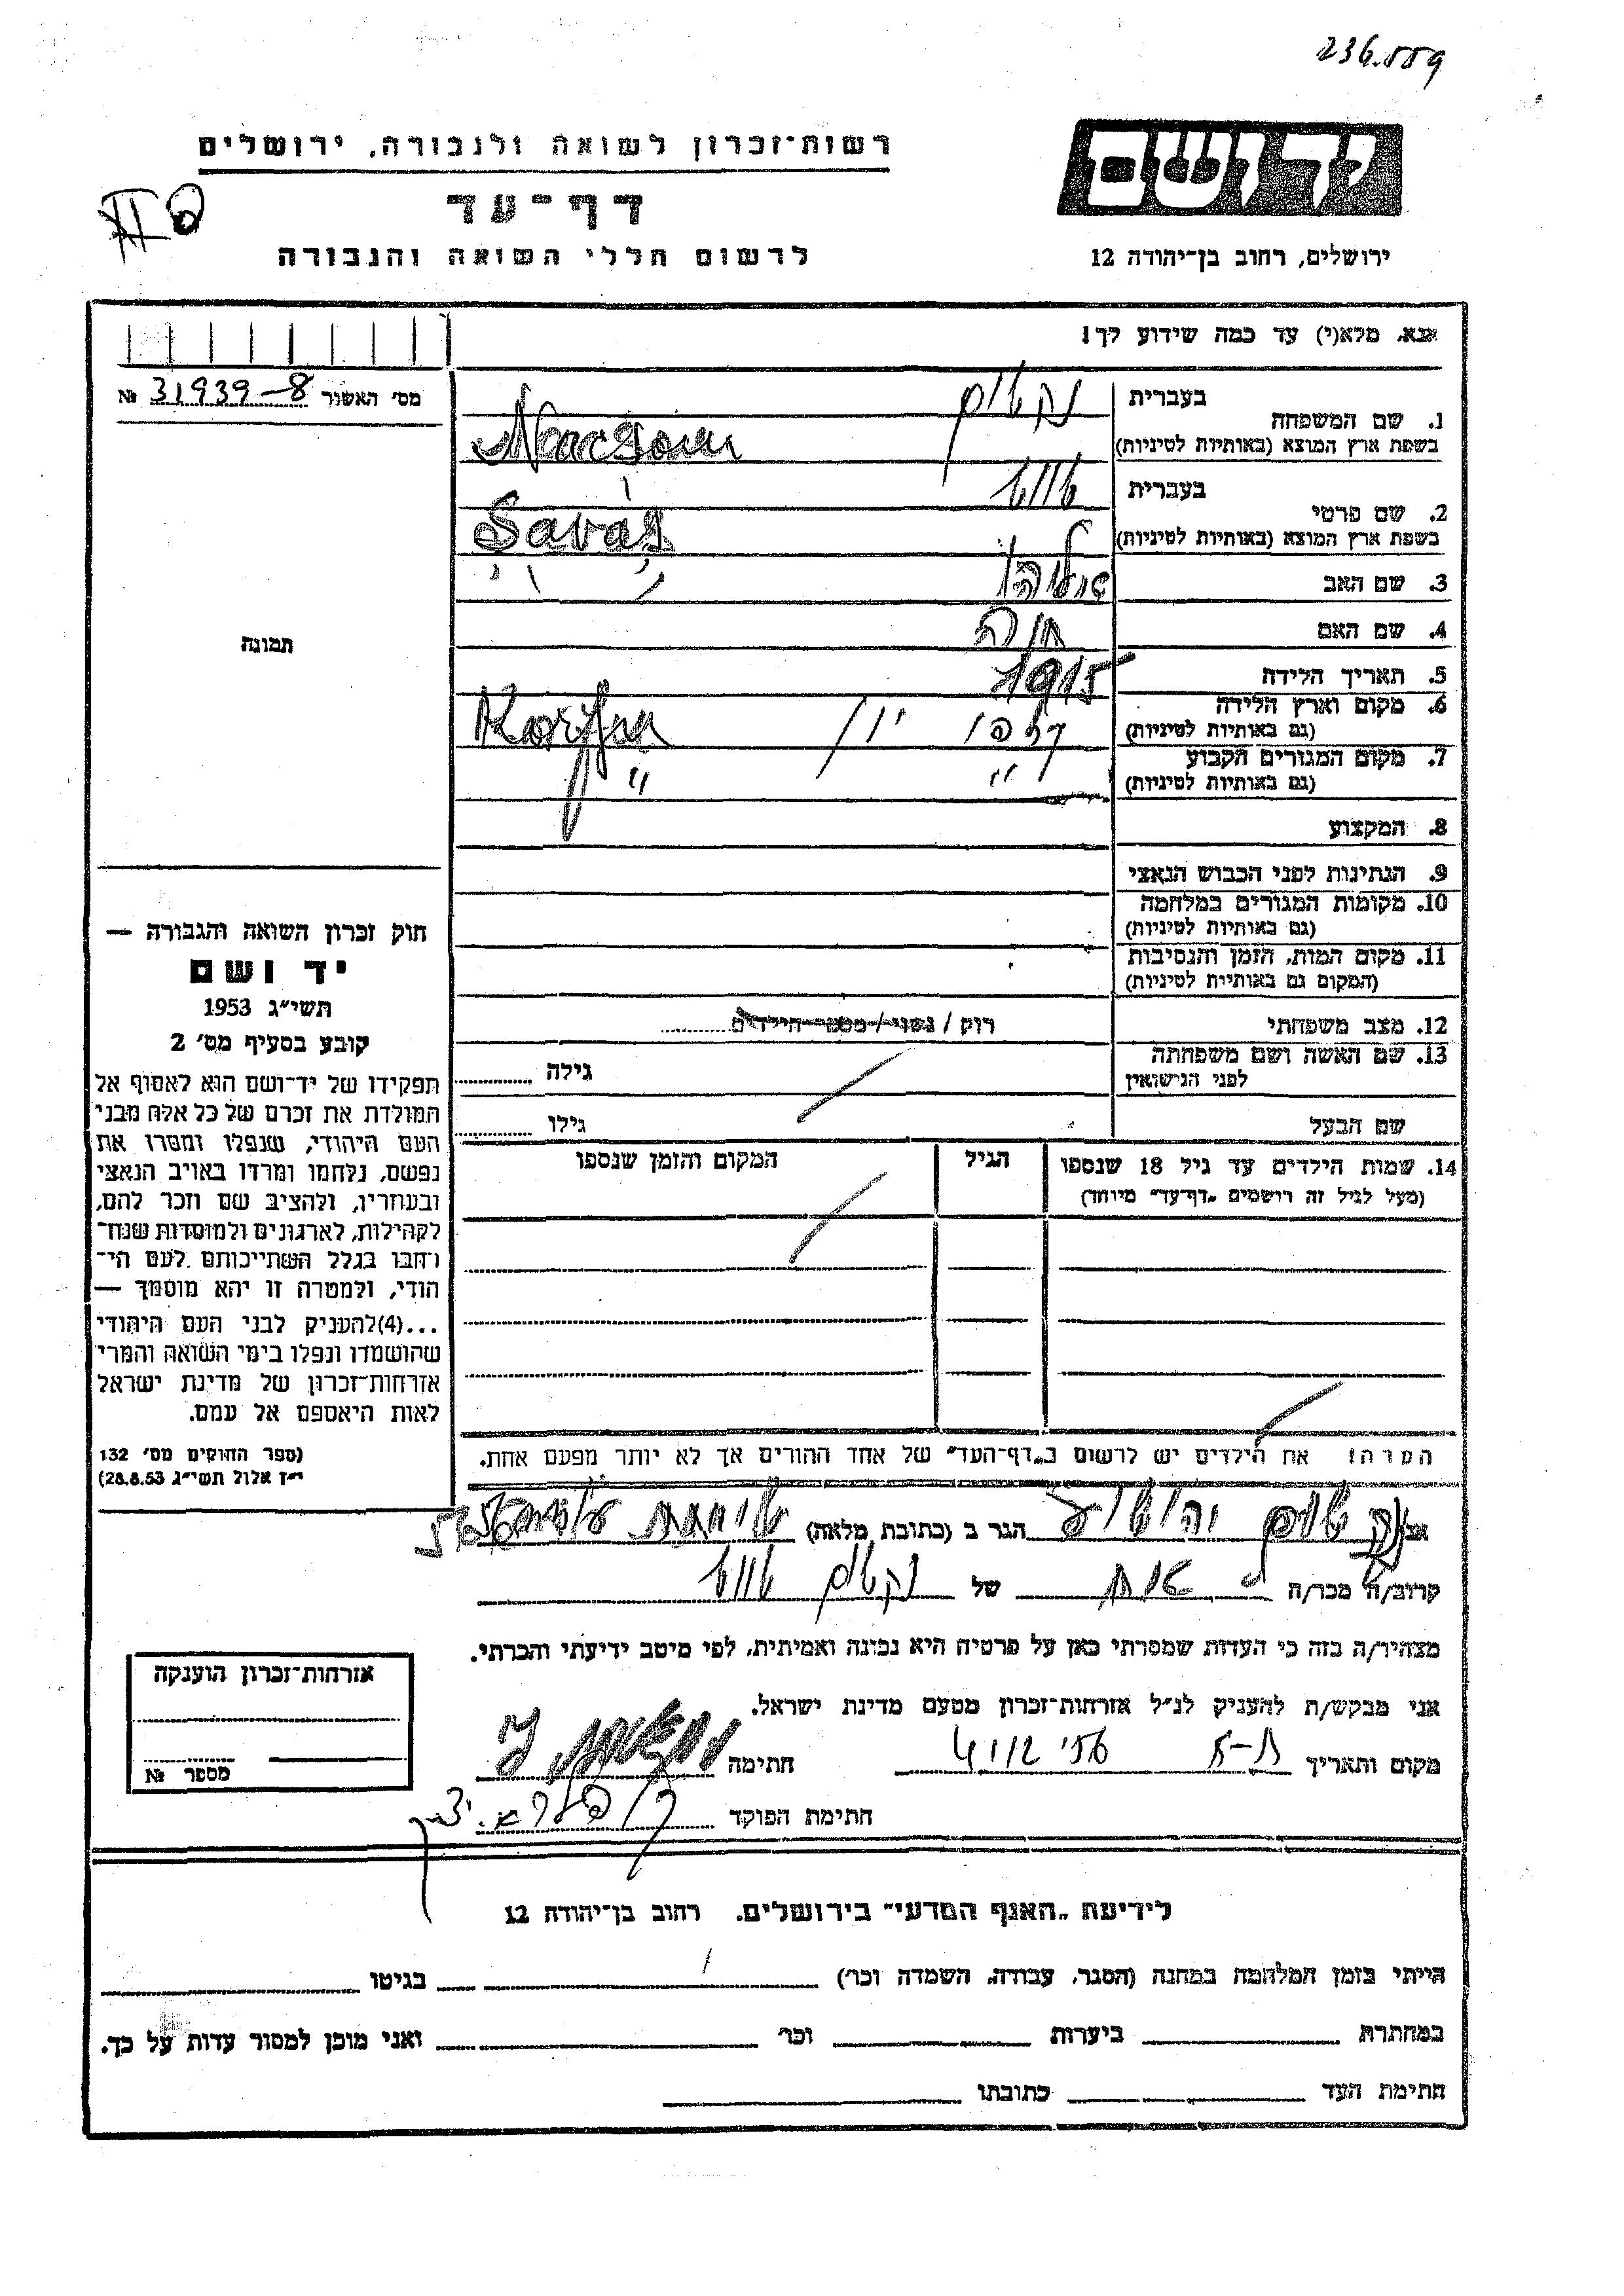 236.559
רשות־זכרון לשואה ולגבורה, ירושלים
יד ושם
דף־עד
לרשום חללי השואה והגבורה
ירושלים, רחוב בן־יהודה 12
אנא, מלא(י) עד כמה שידוע לך!
מס׳ האשור 31939-8 №
1. שם המשפחה
בעברית
בשפת ארץ המוצא (באותיות לטיניות)
2. שם פרטי
בעברית
בשפת ארץ המוצא (באותיות לטיניות)
3. שם האב אליהו
4. שם האם חנה
5. תאריך הלידה 1915
6. מקום וארץ הלידה
(גם באותיות לטיניות)
7. מקום המגורים הקבוע " "
(גם באותיות לטיניות)
8. המקצוע
9. הנתינות לפני הכבוש הנאצי
10. מקומות המגורים במלחמה
(גם באותיות לטיניות)
11. מקום המות, הזמן והנסיבות
(המקום גם באותיות לטיניות)
12. מצב משפחתי רוק / נשוי / מספר הילדים
13. שם האשה ושם משפחתה
לפני הנישואין גילה
שם הבעל גילו
14. שמות הילדים עד גיל 18 שנספו הגיל המקום והזמן שנספו
(מעל לגיל זה רושמים „דף־עד״ מיוחד)
הערה! את הילדים יש לרשום ב„דף־העד״ של אחד ההורים אך לא יותר מפעם אחת.
תמונה
חוק זכרון השואה והגבורה —
יד ושם
תשי״ג 1953
קובע בסעיף מס׳ 2
תפקידו של יד־ושם הוא לאסוף אל
המולדת את זכרם של כל אלה מבני
העם היהודי, שנפלו ומסרו את
נפשם, נלחמו ומרדו באויב הנאצי
ובעוזריו, ולהציב שם וזכר להם,
לקהילות, לארגונים ולמוסדות שנח־
רחבו בגלל השתייכותם לעם הי־
הודי, ולמטרה זו יהא מוסמך —
...(4)להעניק לבני העם היהודי
שהושמדו ונפלו בימי השואה והמרי
אזרחות־זכרון של מדינת ישראל
לאות היאספם אל עמם.
(ספר החוקים מס׳ 132
י״ז אלול תשי״ג 28.8.53)
אני הגר ב (כתובת מלאה)
קרוב/ה מכר/ה אח של
מצהיר/ה בזה כי העדות שמסרתי כאן על פרטיה היא נכונה ואמיתית, לפי מיטב ידיעתי והכרתי.
אני מבקש/ת להעניק לנ״ל אזרחות־זכרון מטעם מדינת ישראל.
מקום ותאריך ת-א חתימה
חתימת הפוקד
אזרחות־זכרון הוענקה
מספר №
לידיעת „האגף המדעי״ בירושלים. רחוב בן־יהודה 12
הייתי בזמן המלחמה במחנה (הסגר, עבודה, השמדה וכר׳) בגיטו
במחתרת ביערות וכר׳ ואני מוכן למסור עדות על כך.
חתימת העד כתובתו